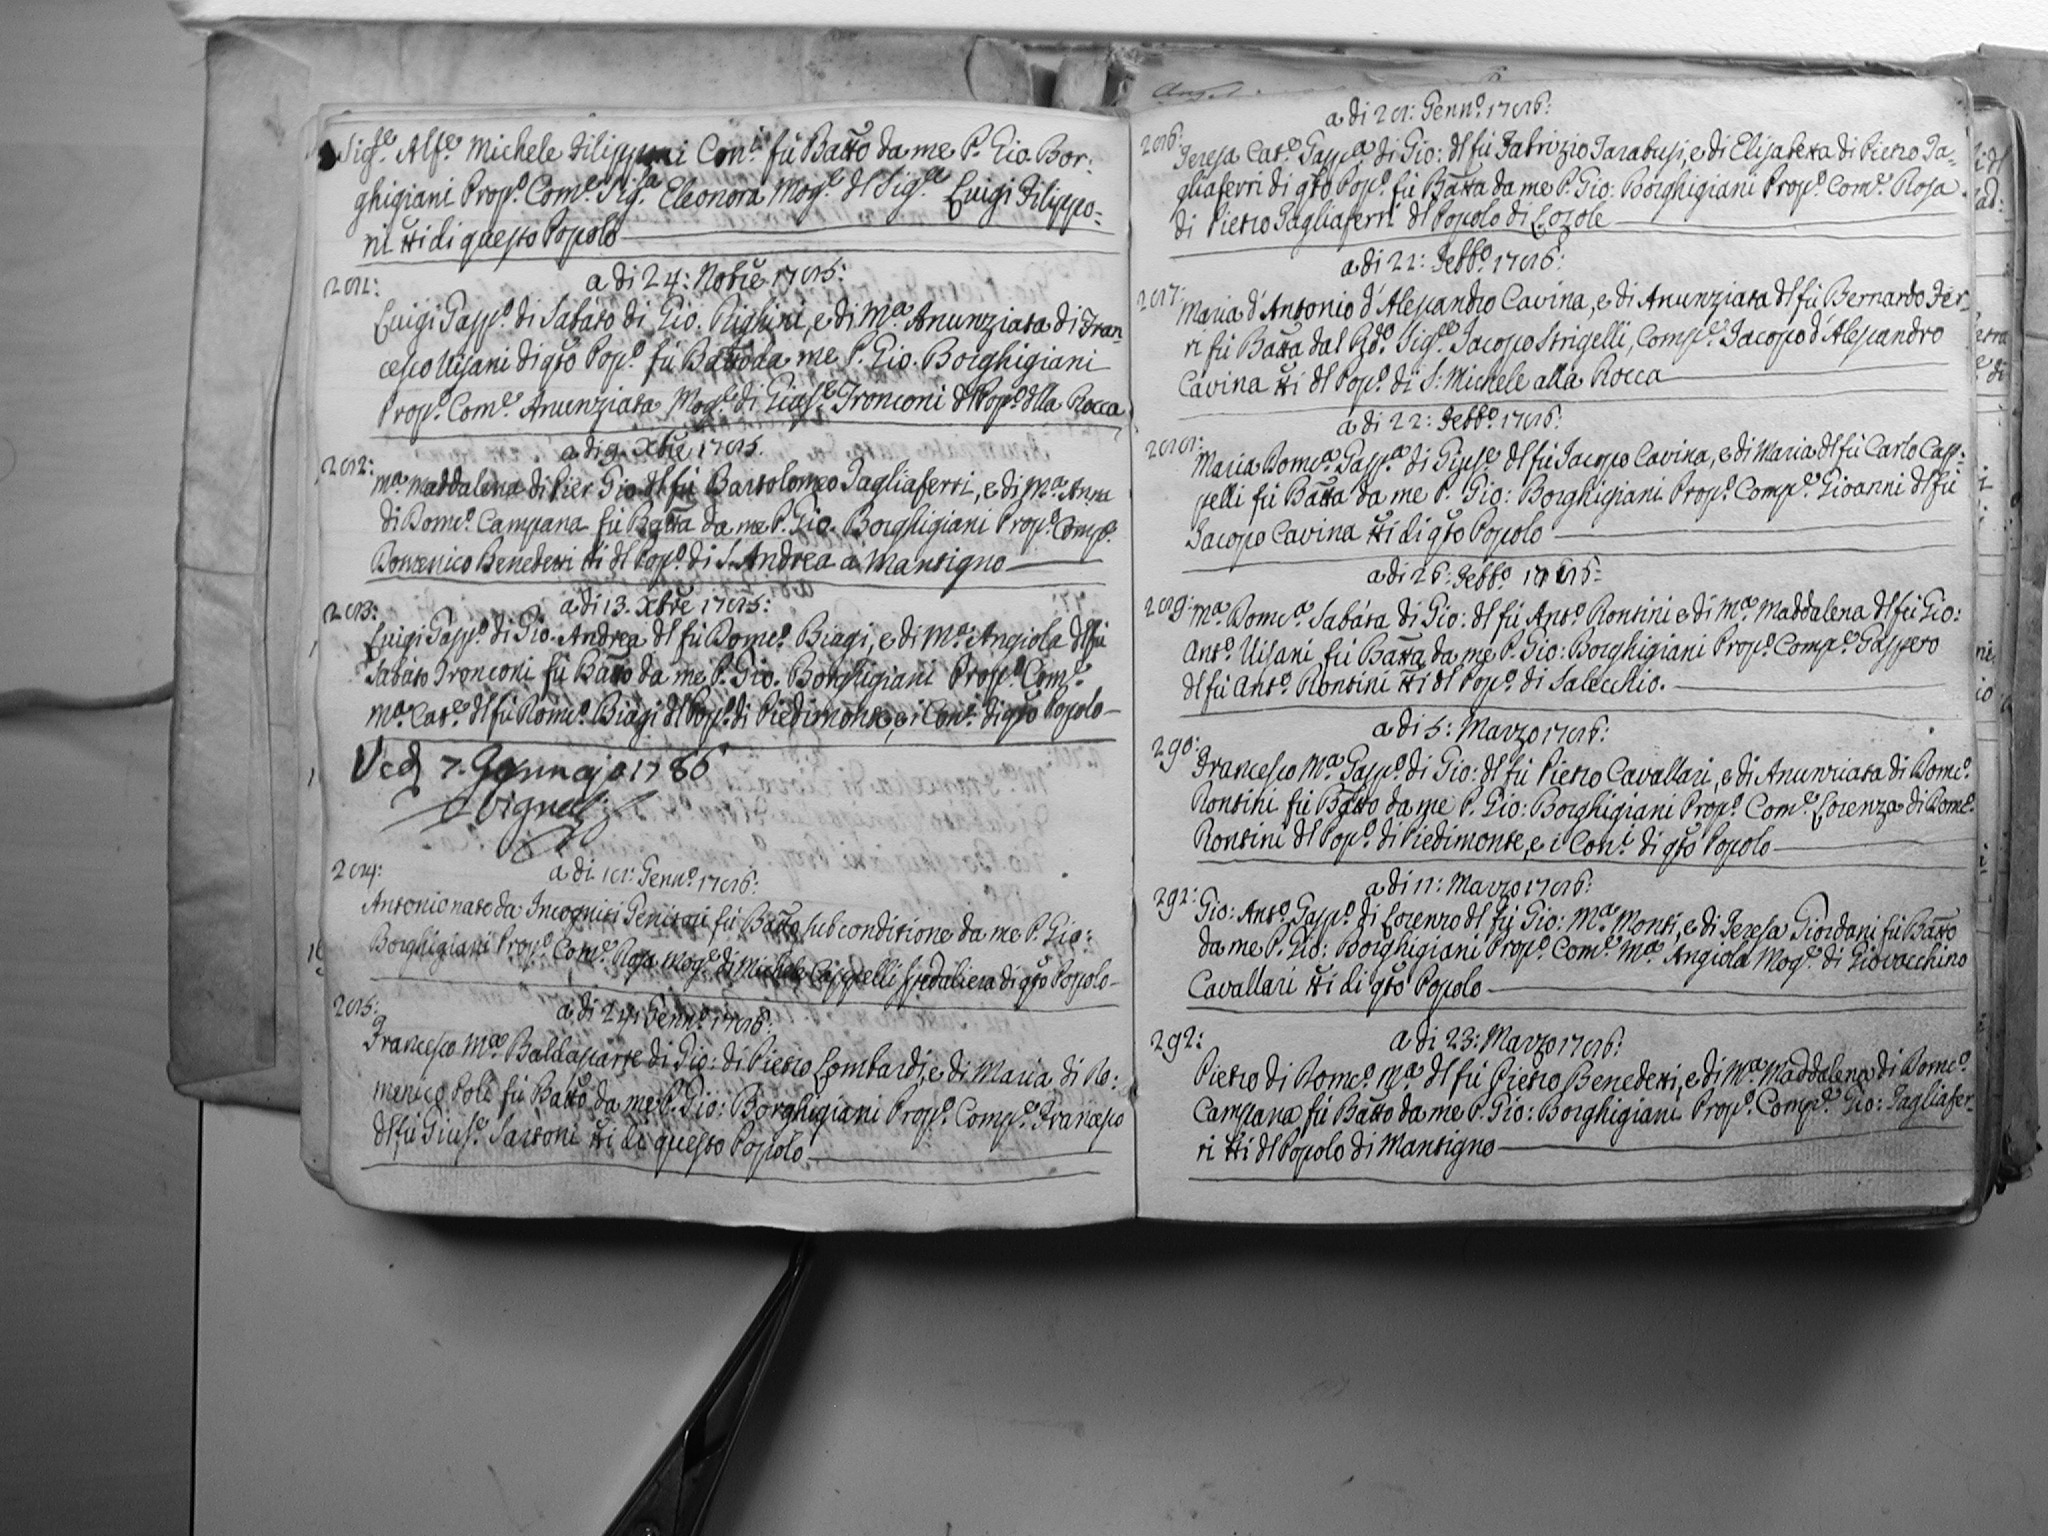 Sigre. Alfe. Michele Filipponi Coni. fù Batto da me P. Gio. Bor:
ghigiani Propo. Come. Siga. Eleonora Moge. dl Sige. Luigi Filippo=
ni tti di questo Popolo
a di 24: Nobre 1785:
281:
Luigi Gasppo. di Sabato di Gio. Righini, e di Ma. Anunziata di Fran
cesco Visani di qto Popo. fù Batto da me P. Gio. Borghigiani
Propo. Come. Anunziata Moge. di Giuse. Tronconi dl Popo. dlla Rocca
a di 9. Xbre 1785.
282:
Ma. Maddalena di Pier Gio dl fù Bartolomeo Tagliaferri, e di Ma. Anna
di Domco. Campana fù Batta da me P. Gio. Borghigiani Propo. Compe.
Domenico Benedetti tti dl Popo. di S. Andrea a Mantigno
a di 13. Xbre 1785:
283:
Luigi Gasppo. di Gio. Andrea dl fù Domco. Biagi, e di Ma. Angiola dl fù
Sabato Tronconi fù Batto da me P. Gio. Borghigiani Propo. Come.
Ma. Cate. dl fù Domco. Biagi dl Popo. di Piedimonte, e i Coni. di qto Popolo
7. Gennajo 1786
284:
a di 18: Genno. 1786:
Antonio nato da Incogniti Genitori fù Batto sub conditione da me P. Gio:
Borghigiani Propo. Come. Rosa Moge. di Michele Cappelli Spedaliera di qto Popolo
285:
a di 24: Genno. 1786:
Francesco Ma. Baldasarre di Gio: di Pietro Lombardi, e di Maria di Do:
menico Poli fù Batto da me P. Gio: Borghigiani Propo. Compe. Francesco
dl fù Giuse. Sartoni tti di questo Popolo
a di 28: Genno. 1786:
286:
Teresa Cate. Gasppa. di Gio: dl fù Fabrizio Tarabusi, e di Elisabetta di Pietro Ta=
gliaferri di qto Popo. fù Batta da me P. Gio: Borghigiani Propo. Come. Rosa
di Pietro Tagliaferri dl Popolo di Lozole
a di 22: Febbo. 1786:
287:
Maria d'Antonio d'Alessandro Cavina, e di Anunziata dl fù Bernardo Fer=
ri fù Batta dal Rdo. Sige. Jacopo Strigelli, Compe. Jacopo d'Alessandro
Cavina tti dl Popo. di S: Michele alla Rocca
a di 22: Febbo. 1786:
288:
Maria Domca. Gasppa. di Giuse. dl fù Jacopo Cavina, e di Maria dl fù Carlo Cap=
pelli fù Batta da me P. Gio: Borghigiani Propo. Compe. Gioanni dl fù
Jacopo Cavina tti di qto Popolo
a di 26: Febbo. 1786:
289:
Ma. Domca. Sabata di Gio: dl fù Anto. Rontini e di Ma. Maddalena dl fù Gio:
Anto. Visani fù Batta da me P. Gio: Borghigiani Propo. Compe. Gaspero
dl fù Anto. Rontini tti dl Popo. di Salecchio.
a di 5: Marzo 1786:
290:
Francesco Ma. Gasppo. di Gio: dl fù Pietro Cavallari, e di Anunziata di Domco.
Rontini fù Batto da me P. Gio: Borghigiani Propo. Come. Lorenza di Domco.
Rontini dl Popo. di Piedimonte, e i Coni. di qto Popolo
a di 11: Marzo 1786:
292:
Gio: Anto. Gasppo. di Lorenzo dl fù Gio: Ma. Monti, e di Teresa Giordani fù Batto
da me P. Gio: Borghigiani Propo. Come. Ma. Angiola Moge. di Giovacchino
Cavallari tti di qto Popolo
292:
a di 23: Marzo 1786:
Pietro di Domco. Ma. dl fù Pietro Benedetti, e di Ma. Maddalena di Domco.
Campana fù Batto da me P. Gio: Borghigiani Propo. Compe. Gio: Tagliafer=
ri tti dl Popolo di Mantigno